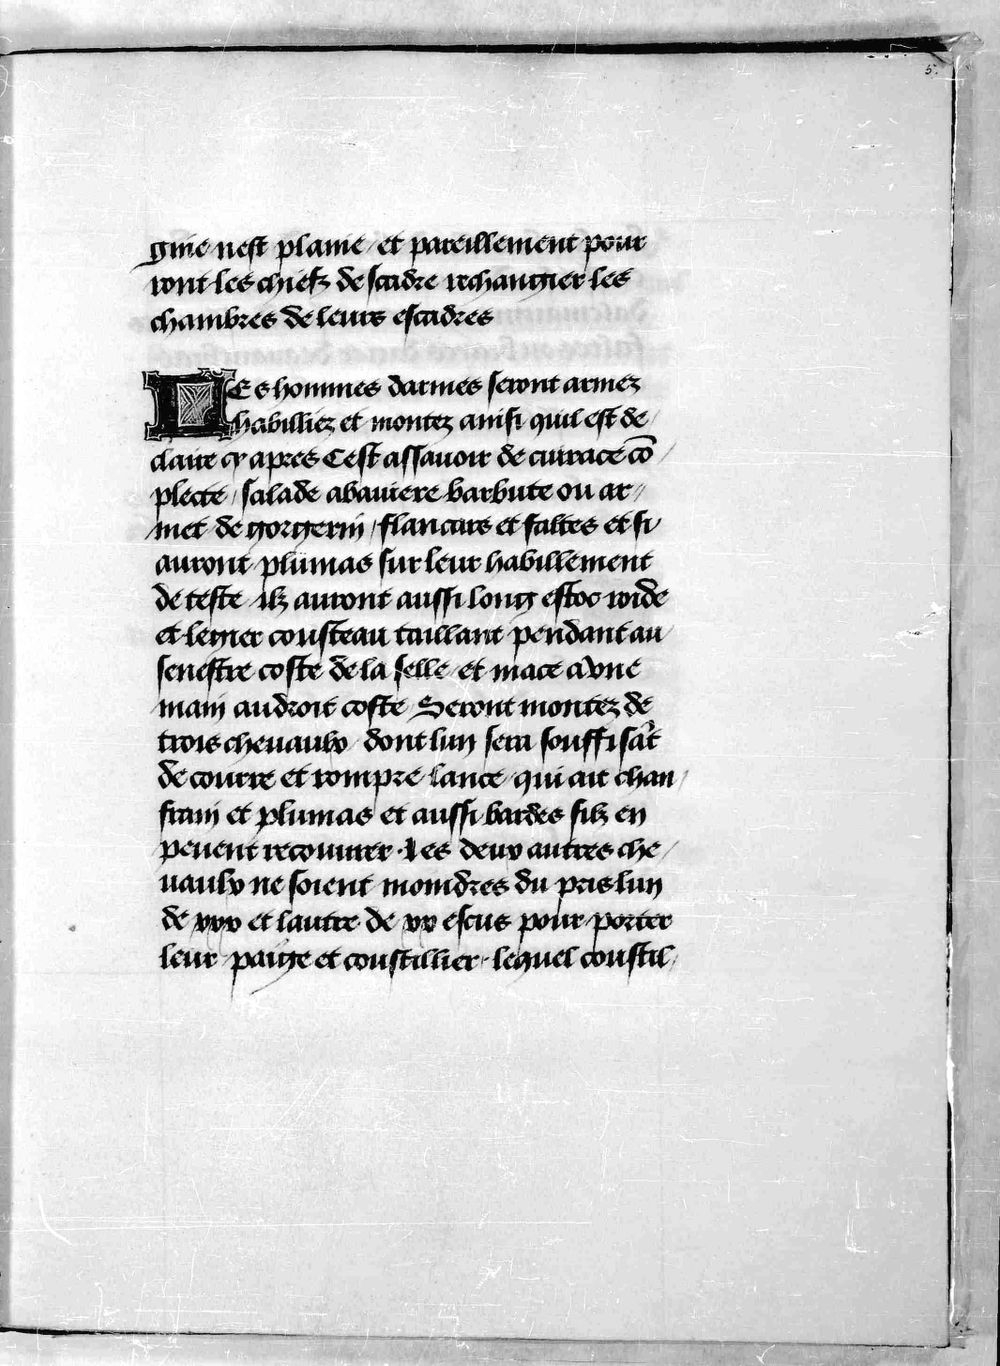 5
gnie nest plaine / et pareillement pour
ront les chiefz descadre rechangier les
chambres de leurs escadres
Les hommes darmes seront armez
habilliez et montez ainsi quil est de /
claire cy apres Cest assavoir de cuirace cō /
plecte / salade abaviere barbute ou ar //
met de gorgerin / flancars et faltes et si
auront plumas sur leur habillement
de teste ilz auront aussi long estoc roide
et legier cousteau taillant pendant au
senestre coste de la selle et mace a vne
main au droit coste Seront montez de
trois chevaulx dont lun sera souffisāt
de courre et rompre lance qui ait chan /
frain et plumas et aussi bardes silz en
peuent recouvrer · Les deux autres che /
vaulx ne soient moindres du pris lun
de xxx et lautre de xx escus pour porter
leur paige et coustillier · lequel coustil /